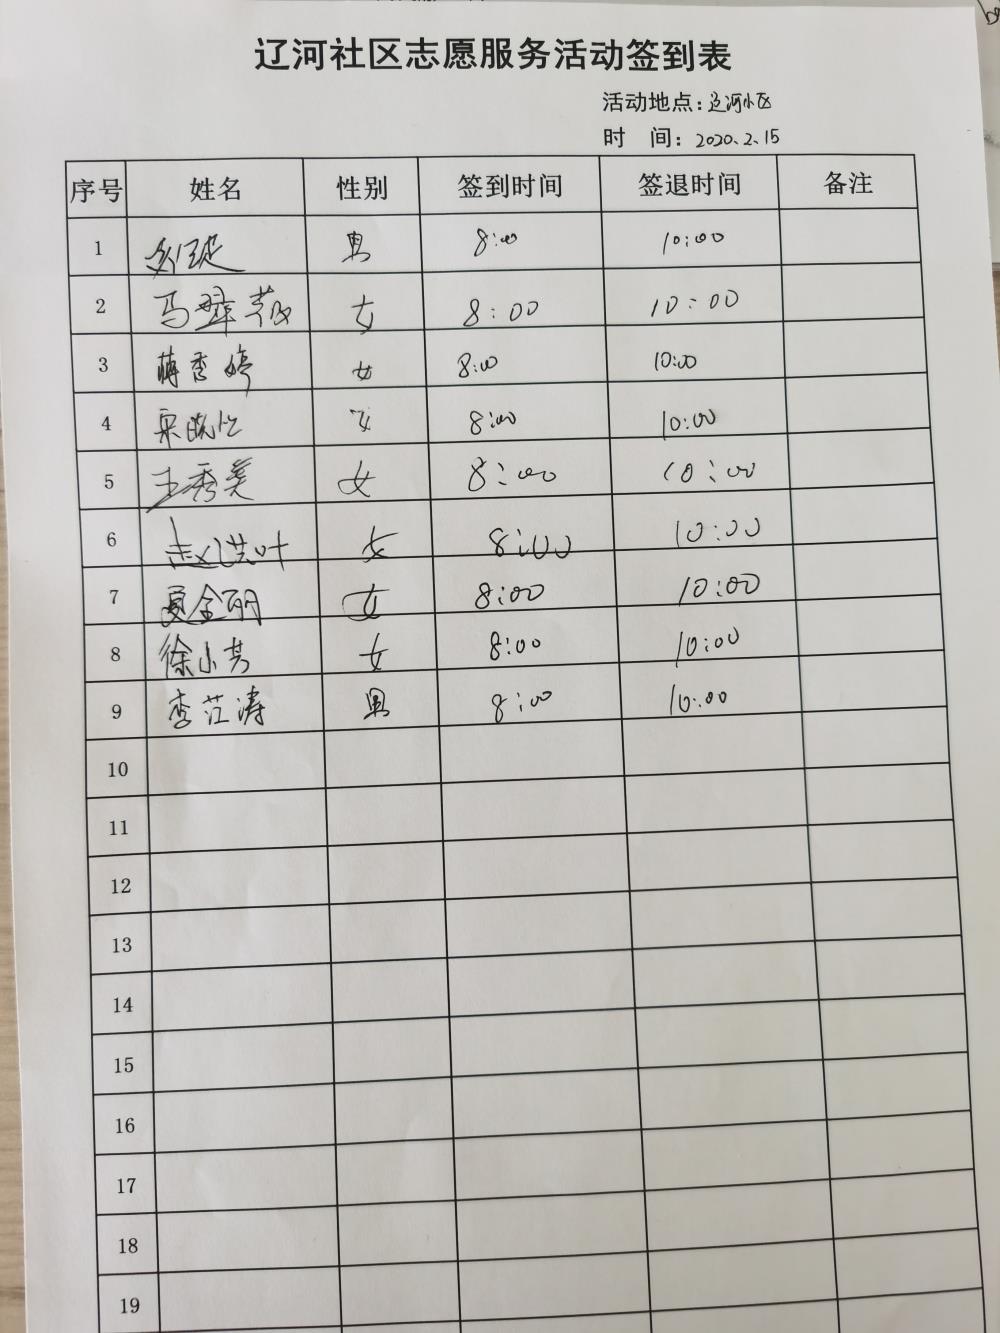 辽河社区志愿服务活动签到表
活动地点：辽河小区
时 间：2020.2.15
序号 姓名 性别 签到时间 签退时间 备注
1 男 8:00 10:00
2 马翠 女 8:00 10:00
3 蒋香婷 女 8:00 10:00
4 宋晓 女 8:00 10:00
5 王秀美 女 8:00 10:00
6 赵洪叶 女 8:00 10:00
7 夏金丽 女 8:00 10:00
8 徐小芳 女 8:00 10:00
9 李江涛 男 8:00 10:00
10
11
12
13
14
15
16
17
18
19